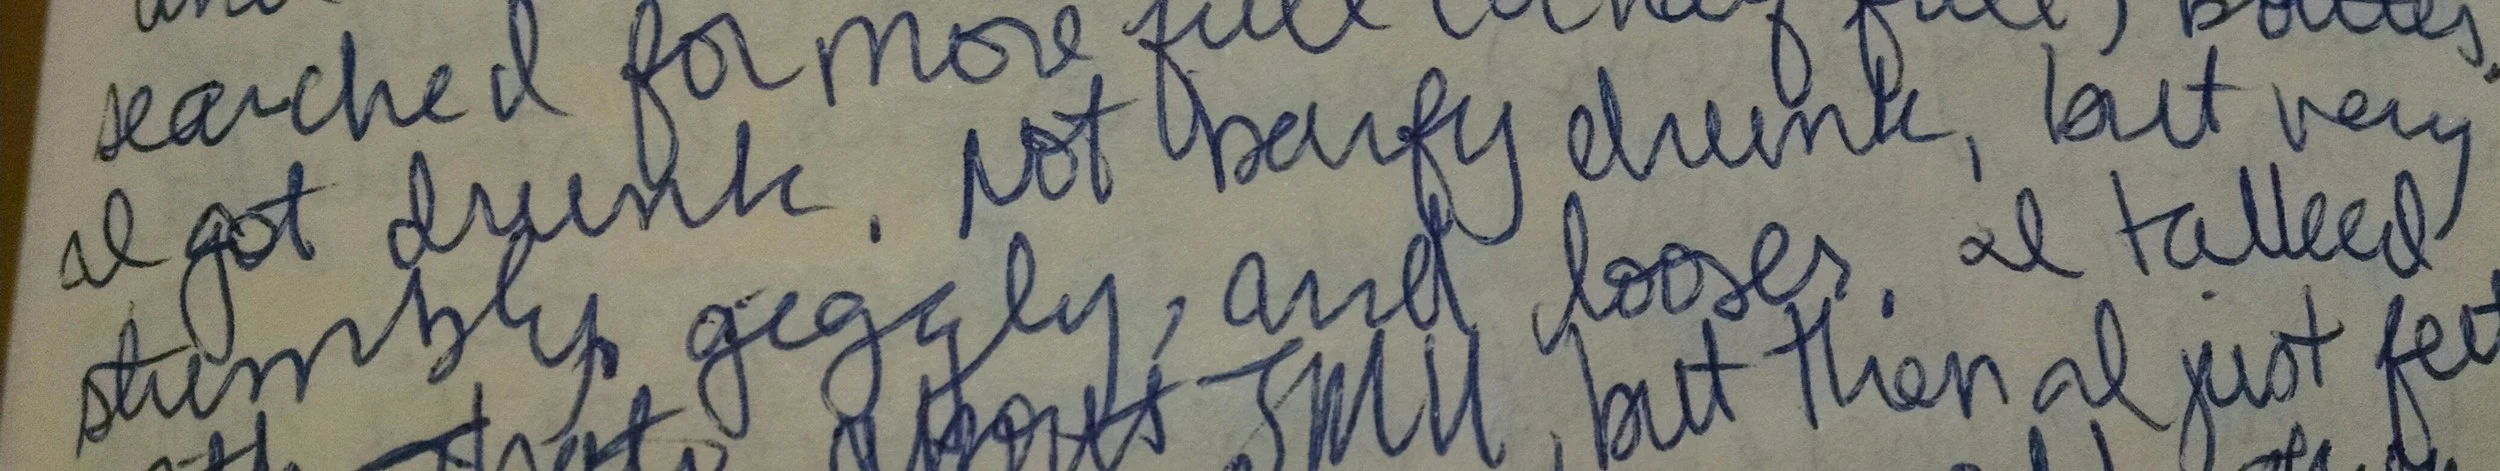 and
searched for more full (or half full) bottles.
I got drunk. Not barfy drunk, but very
stumbly, giggly, and looser. I talked
about JMU, but then I just felt